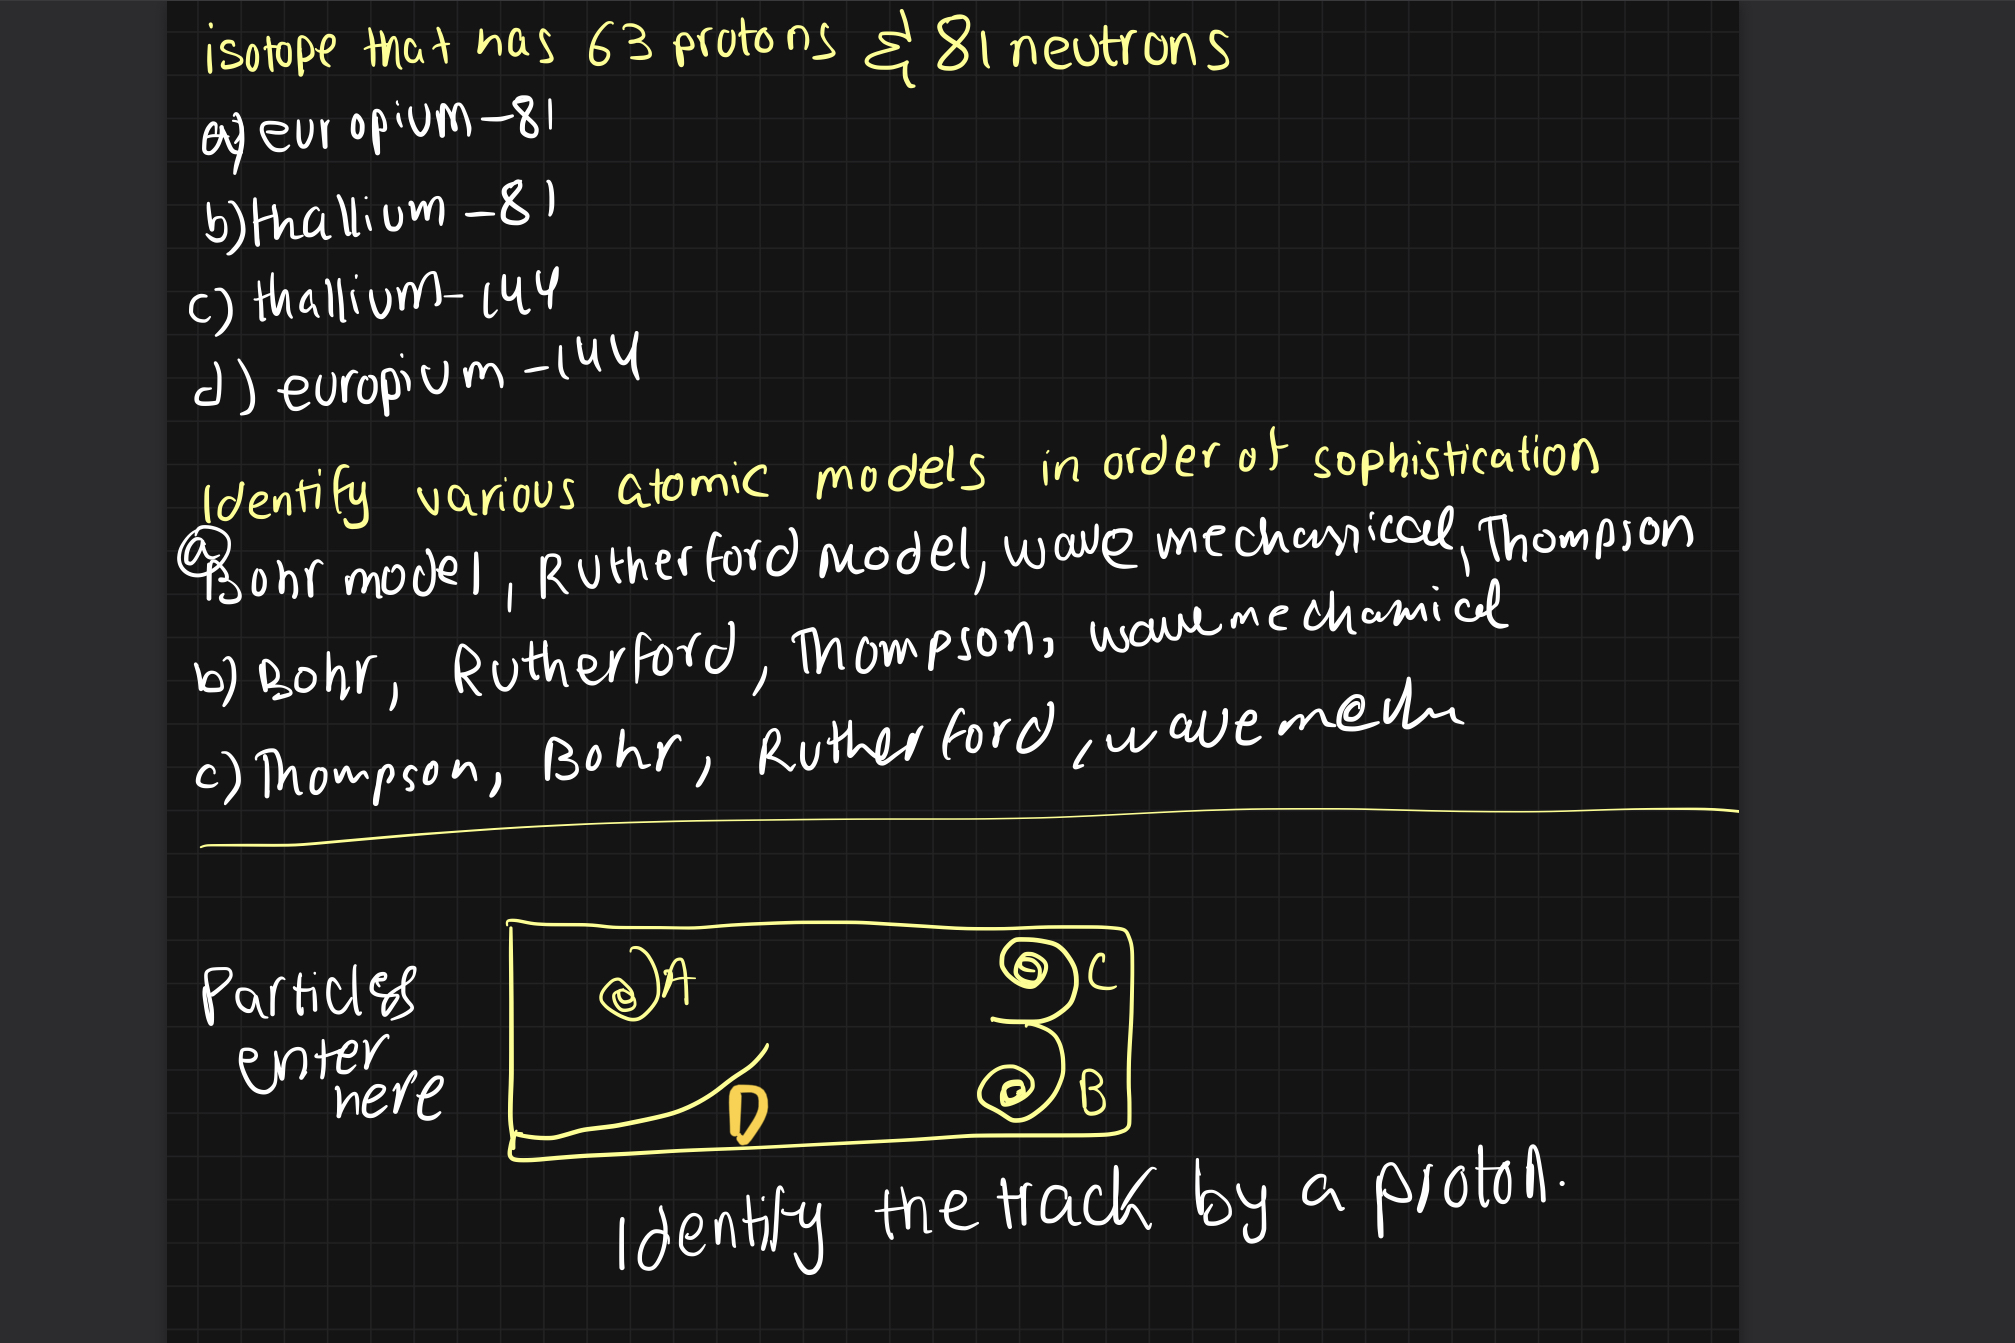 isotope that has 63 protons & 81 neutrons
a) europium-81
b) thallium-81
c) thallium-144
d) europium-144
Identify various atomic models in order of sophistication
a Bohr model, Rutherford Model, wave mechanical, Thompson
b) Bohr, Rutherford, Thompson, wave mechanical
c) Thompson, Bohr, Rutherford, wave mech
Particles
enter
here
A
C
B
D
Identify the track by a proton.